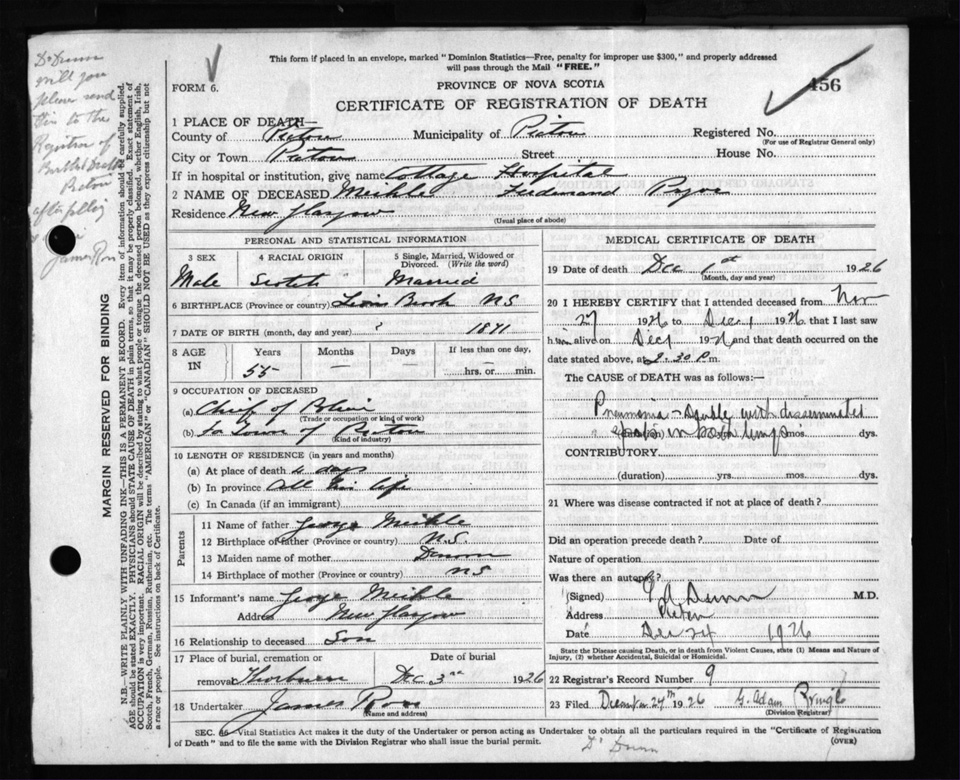 This form if placed in an envelope, marked "Dominion Statistics—Free, penalty for improper use $300," and properly addressed
will pass through the Mail "FREE."
FORM 6.
PROVINCE OF NOVA SCOTIA
456
CERTIFICATE OF REGISTRATION OF DEATH
1 PLACE OF DEATH—
County of Pictou Municipality of Pictou Registered No.
(For use of Registrar General only)
City or Town Pictou Street House No.
If in hospital or institution, give name Cottage Hospital
2 NAME OF DECEASED Meikle Ferdinand Pryor
Residence New Glasgow
(Usual place of abode)
PERSONAL AND STATISTICAL INFORMATION
3 SEX 4 RACIAL ORIGIN 5 Single, Married, Widowed or
Divorced. (Write the word)
Male Scotch Married
6 BIRTHPLACE (Province or country) Brook NS
7 DATE OF BIRTH (month, day and year) ? 1871
8 AGE IN Years Months Days If less than one day,
55 — — hrs. or min.
9 OCCUPATION OF DECEASED
(a) Chief of Police
(Trade or occupation or kind of work)
(b) Town of Pictou
(Kind of industry)
10 LENGTH OF RESIDENCE (in years and months)
(a) At place of death 4 days
(b) In province All his life
(c) In Canada (if an immigrant)
Parents
11 Name of father George Meikle
12 Birthplace of father (Province or country) N.S.
13 Maiden name of mother
14 Birthplace of mother (Province or country) NS
15 Informant's name George Meikle
Address New Glasgow
16 Relationship to deceased Son
17 Place of burial, cremation or Date of burial
removal Thorburn Dec 3rd 1926
18 Undertaker James Ross
(Name and address)
MEDICAL CERTIFICATE OF DEATH
19 Date of death Dec 1st 1926
(Month, day and year)
20 I HEREBY CERTIFY that I attended deceased from Nov
27 1926 to Dec 1 1926 that I last saw
him alive on Dec 1 1926 and that death occurred on the
date stated above, at 2.30 P.m.
The CAUSE OF DEATH was as follows:—
Pneumonia - Double with disseminated
in both lungs mos. dys.
CONTRIBUTORY
(duration) yrs. mos. dys.
21 Where was disease contracted if not at place of death?
Did an operation precede death? Date of
Nature of operation
Was there an autopsy?
(Signed) Dunn M.D.
Address Pictou
Date Dec 24 1926
State the Disease causing Death, or in death from Violent Causes, state (1) Means and Nature of
Injury, (2) whether Accidental, Suicidal or Homicidal.
22 Registrar's Record Number 9
23 Filed December 27th 1926 G. Adam Pringle
(Division Registrar)
SEC. 46 Vital Statistics Act makes it the duty of the Undertaker or person acting as Undertaker to obtain all the particulars required in the "Certificate of Registration
of Death" and to file the same with the Division Registrar who shall issue the burial permit.
(OVER)
Dr Dunn
MARGIN RESERVED FOR BINDING
N.B.—WRITE PLAINLY WITH UNFADING INK—THIS IS A PERMANENT RECORD. Every item of information should be carefully supplied.
AGE should be stated EXACTLY. PHYSICIANS should STATE CAUSE OF DEATH in plain terms, so that it may be properly classified. Exact statement of
OCCUPATION is very important. RACIAL ORIGIN will be described by stating to what people or tongue the deceased person belonged, whether English, Irish,
Scotch, French, German, Russian, Ruthenian, etc. The terms "AMERICAN" or "CANADIAN" SHOULD NOT BE USED as they express citizenship but not
a race or people. See instructions on back of Certificate.
Dr Dunn
will you
please send
this to the
Registrar of
Pictou
after filling
James Ross